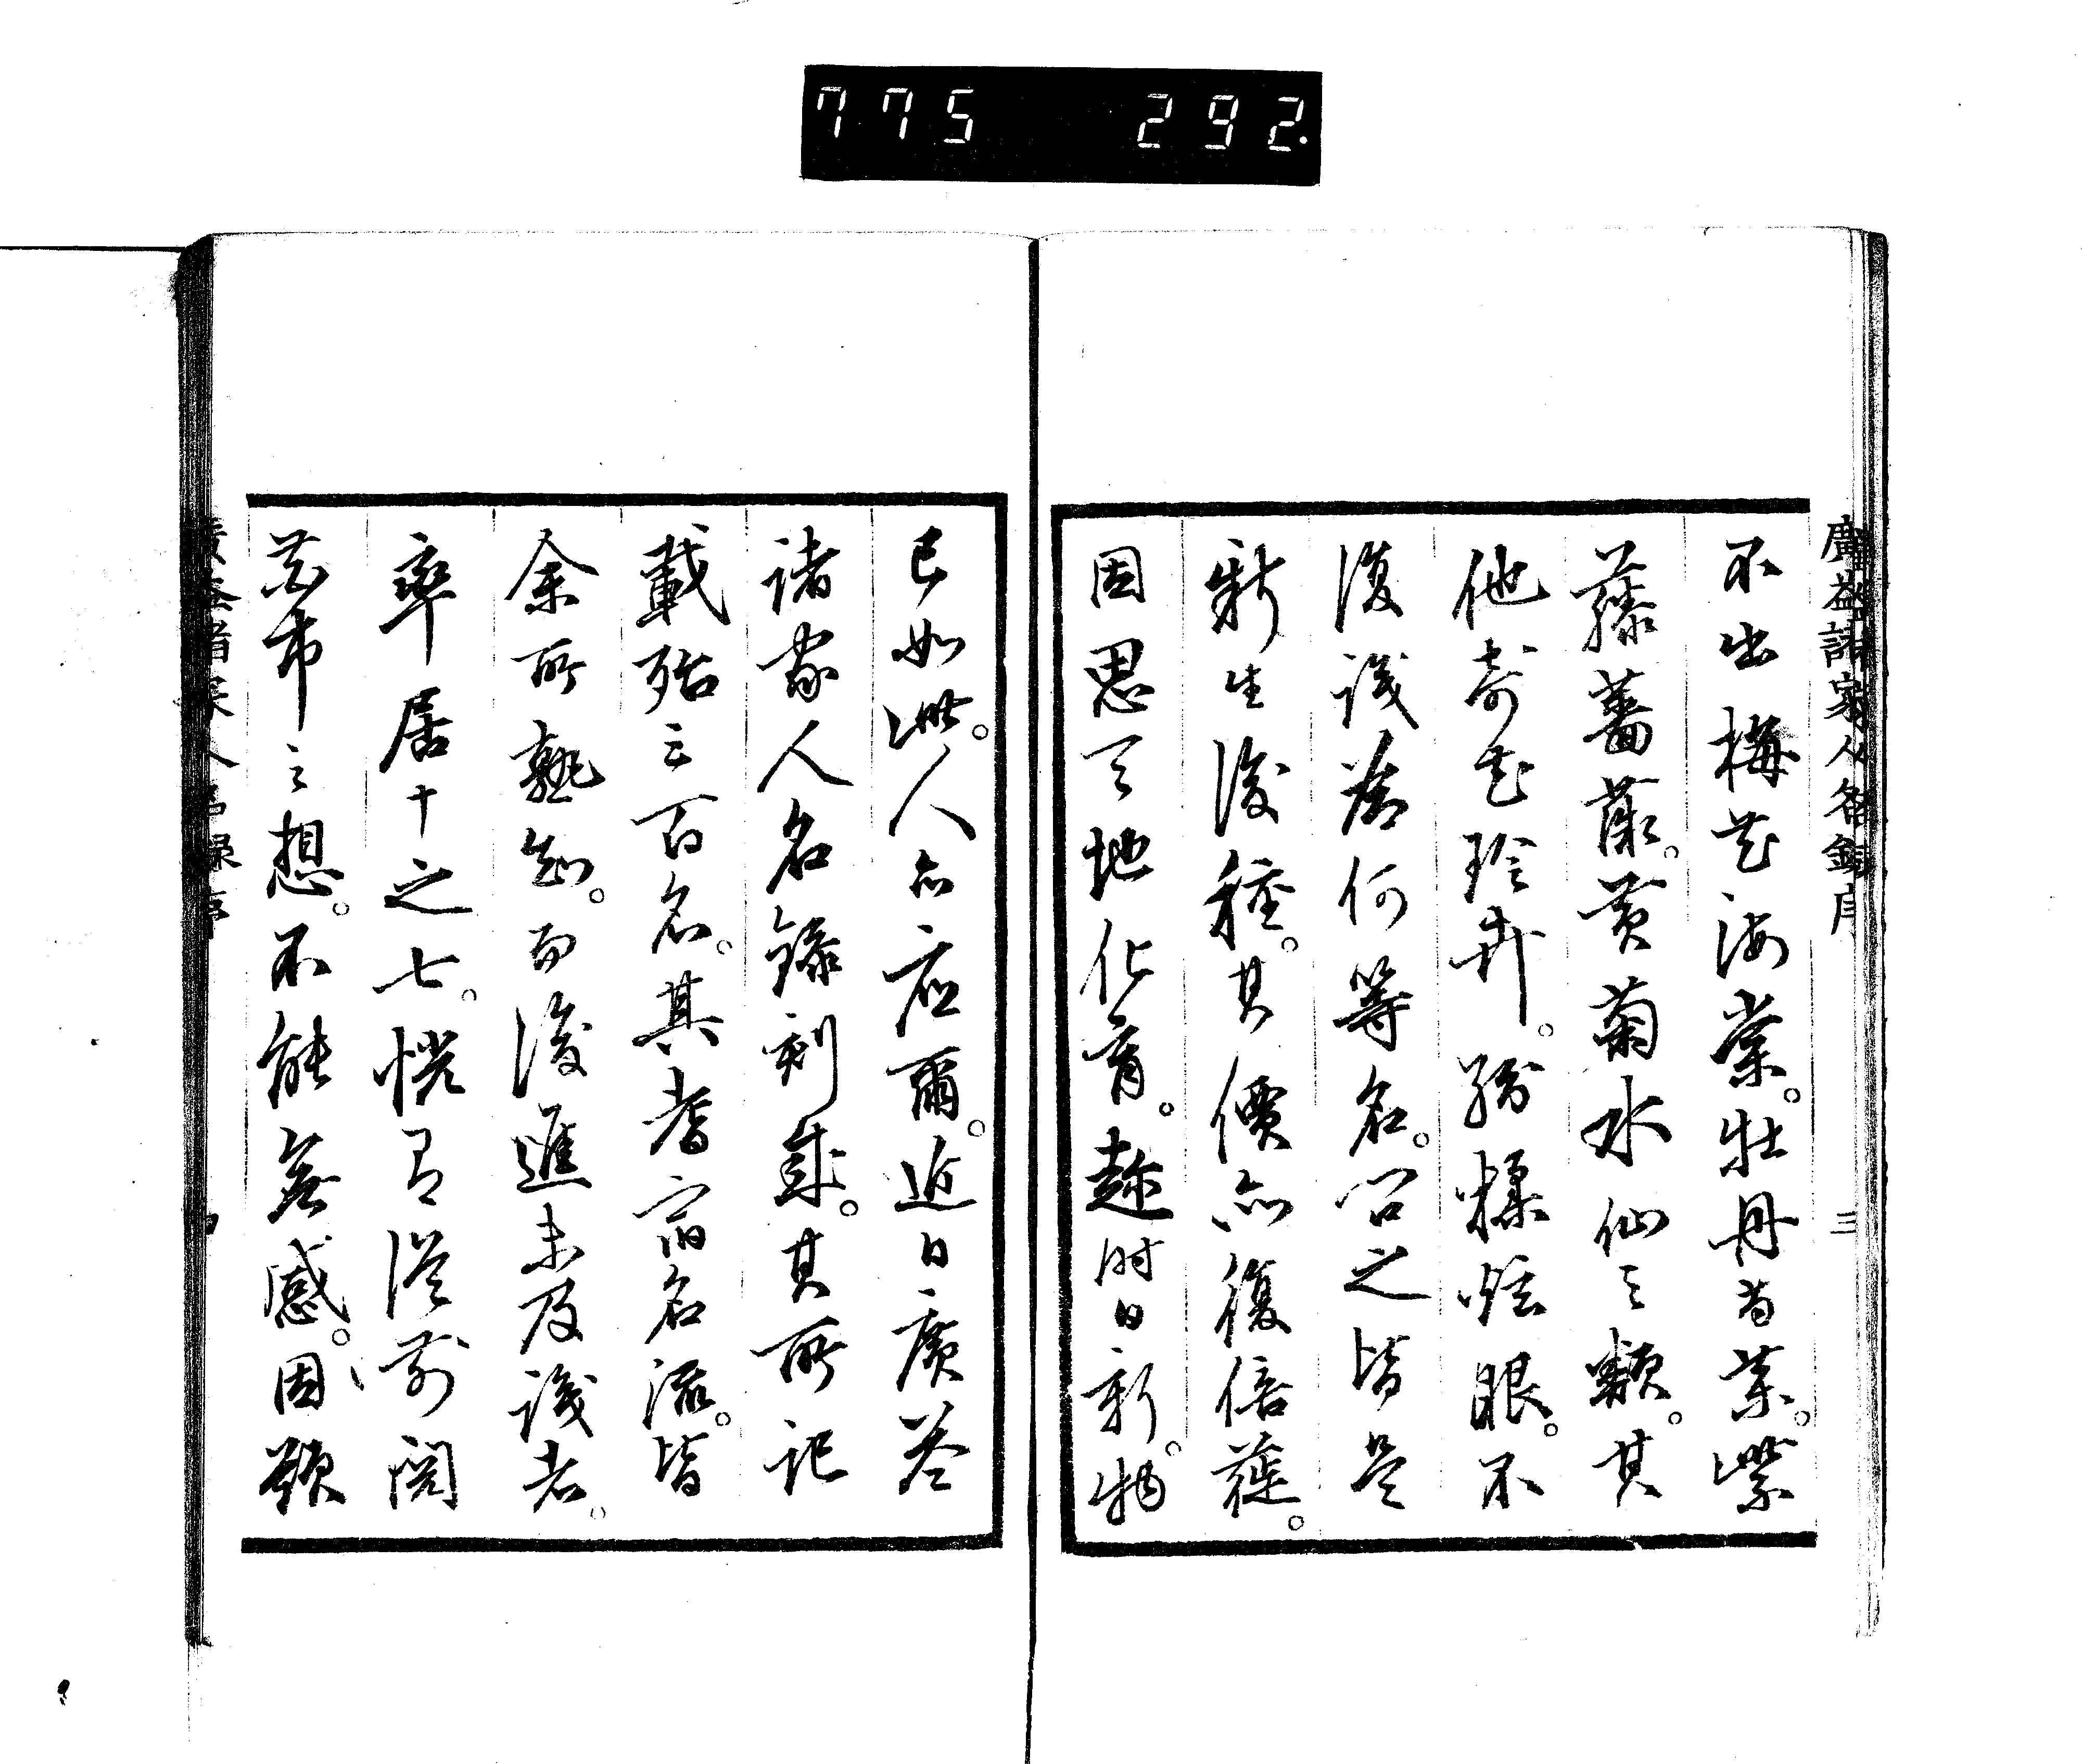 775 292
廣益諸家人名録序 三
不出梅花海棠。牡丹芍藥。紫
藤薔薇。黄菊水仙之類。其
他奇花珍卉。紛糅炫眼。不
復識為何等名。問之皆是
新生後種。其價亦復倍蓰。
因思天地化育。趁時日新。物
已如此。人亦應爾。近日廣益
諸家人名錄刻成。其所記
載殆三百名。其耆宿名流。皆
余所熟知。而後進未及識者。
率居十之七。恍有從前閱
花市之想。不能無感。因題